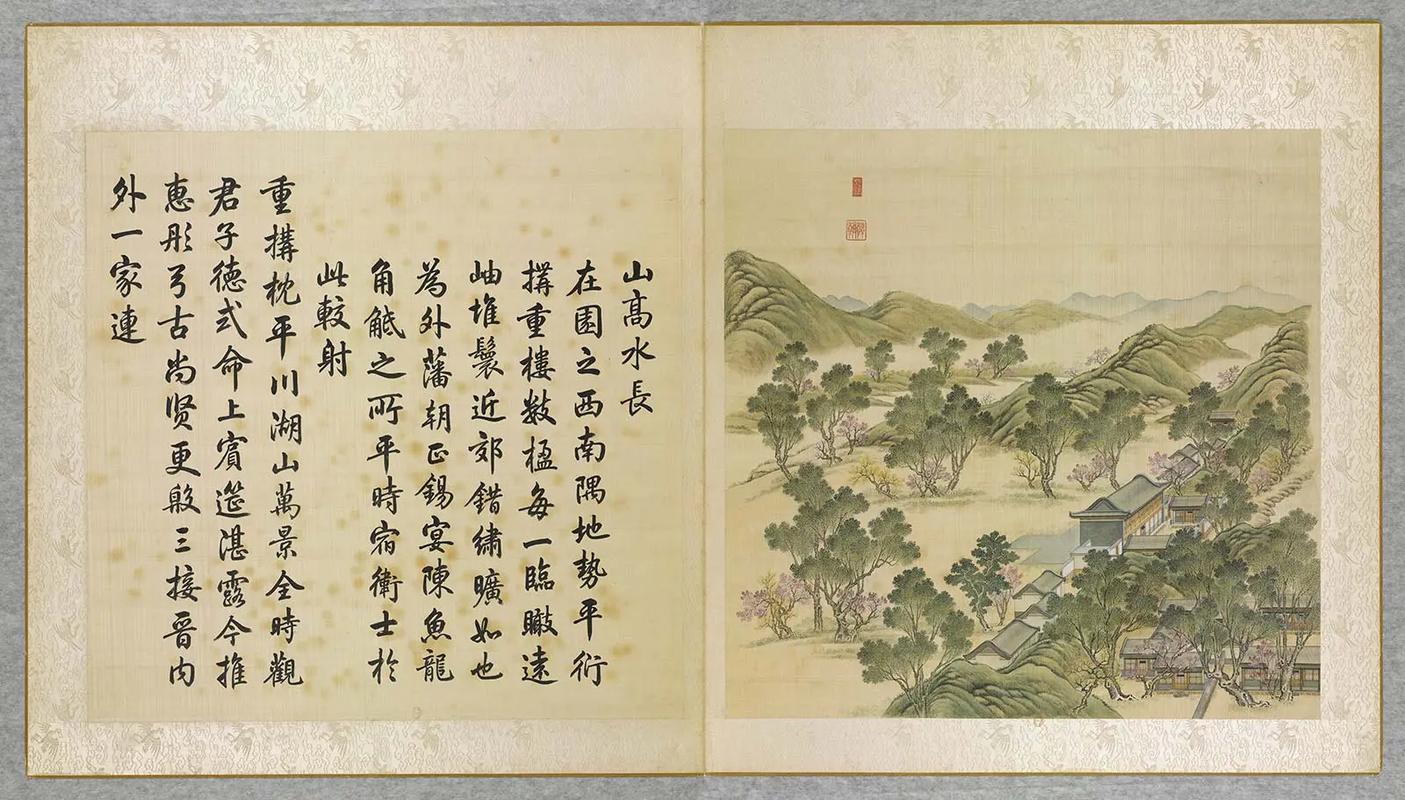 山高水長
在園之西南隅地勢平衍
搆重樓數楹每一臨瞰遠
岫堆鬟近郊錯繡曠如也
為外藩朝正錫宴陳魚龍
角觝之所平時宿衛士於
此較射
重搆枕平川湖山萬景全時觀
君子德式命上賓筵湛露今推
恵彤弓古尚贤更殷三接晉內
外一家連